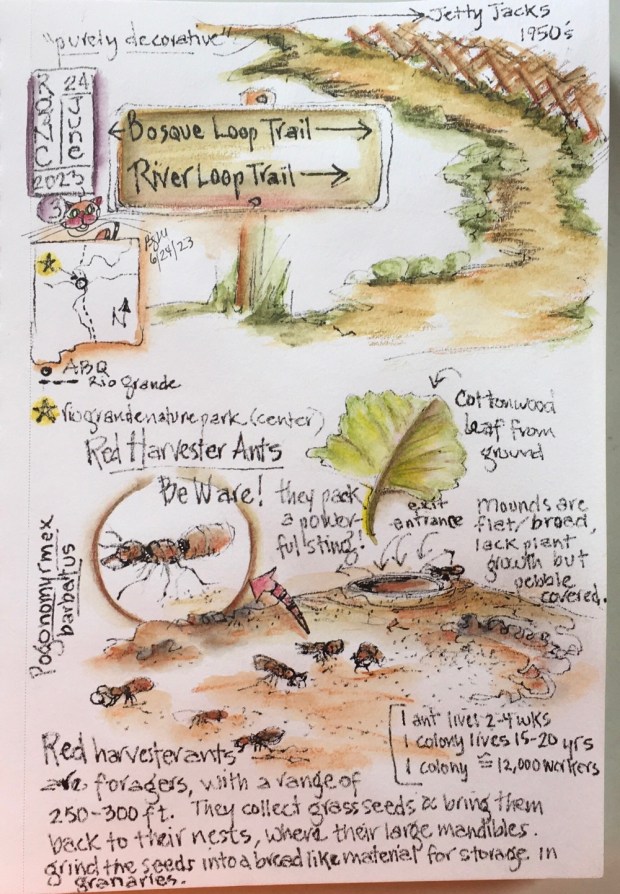 Jetty Jacks
1950's
"purely decorative"
24
June
2023
3
Bosque Loop Trail
River Loop Trail
6/24/23
N
ABQ
Rio Grande
rio grande nature park (center)
Cottonwood
leaf from
ground
Red Harvester Ants
BeWare! they pack
a power-
ful sting!
exit
entrance
mounds are
flat/broad,
lack plant
growth but
pebble
covered.
Pogonomyrmex
barbatus
1 ant lives 2-4 wks
1 colony lives 15-20 yrs
1 colony ≅ 12,000 workers
Red harvester ants
are foragers, with a range of
250-300 ft. They collect grass seeds & bring them
back to their nests, where their large mandibles.
grind the seeds into a bread like material for storage in
granaries.